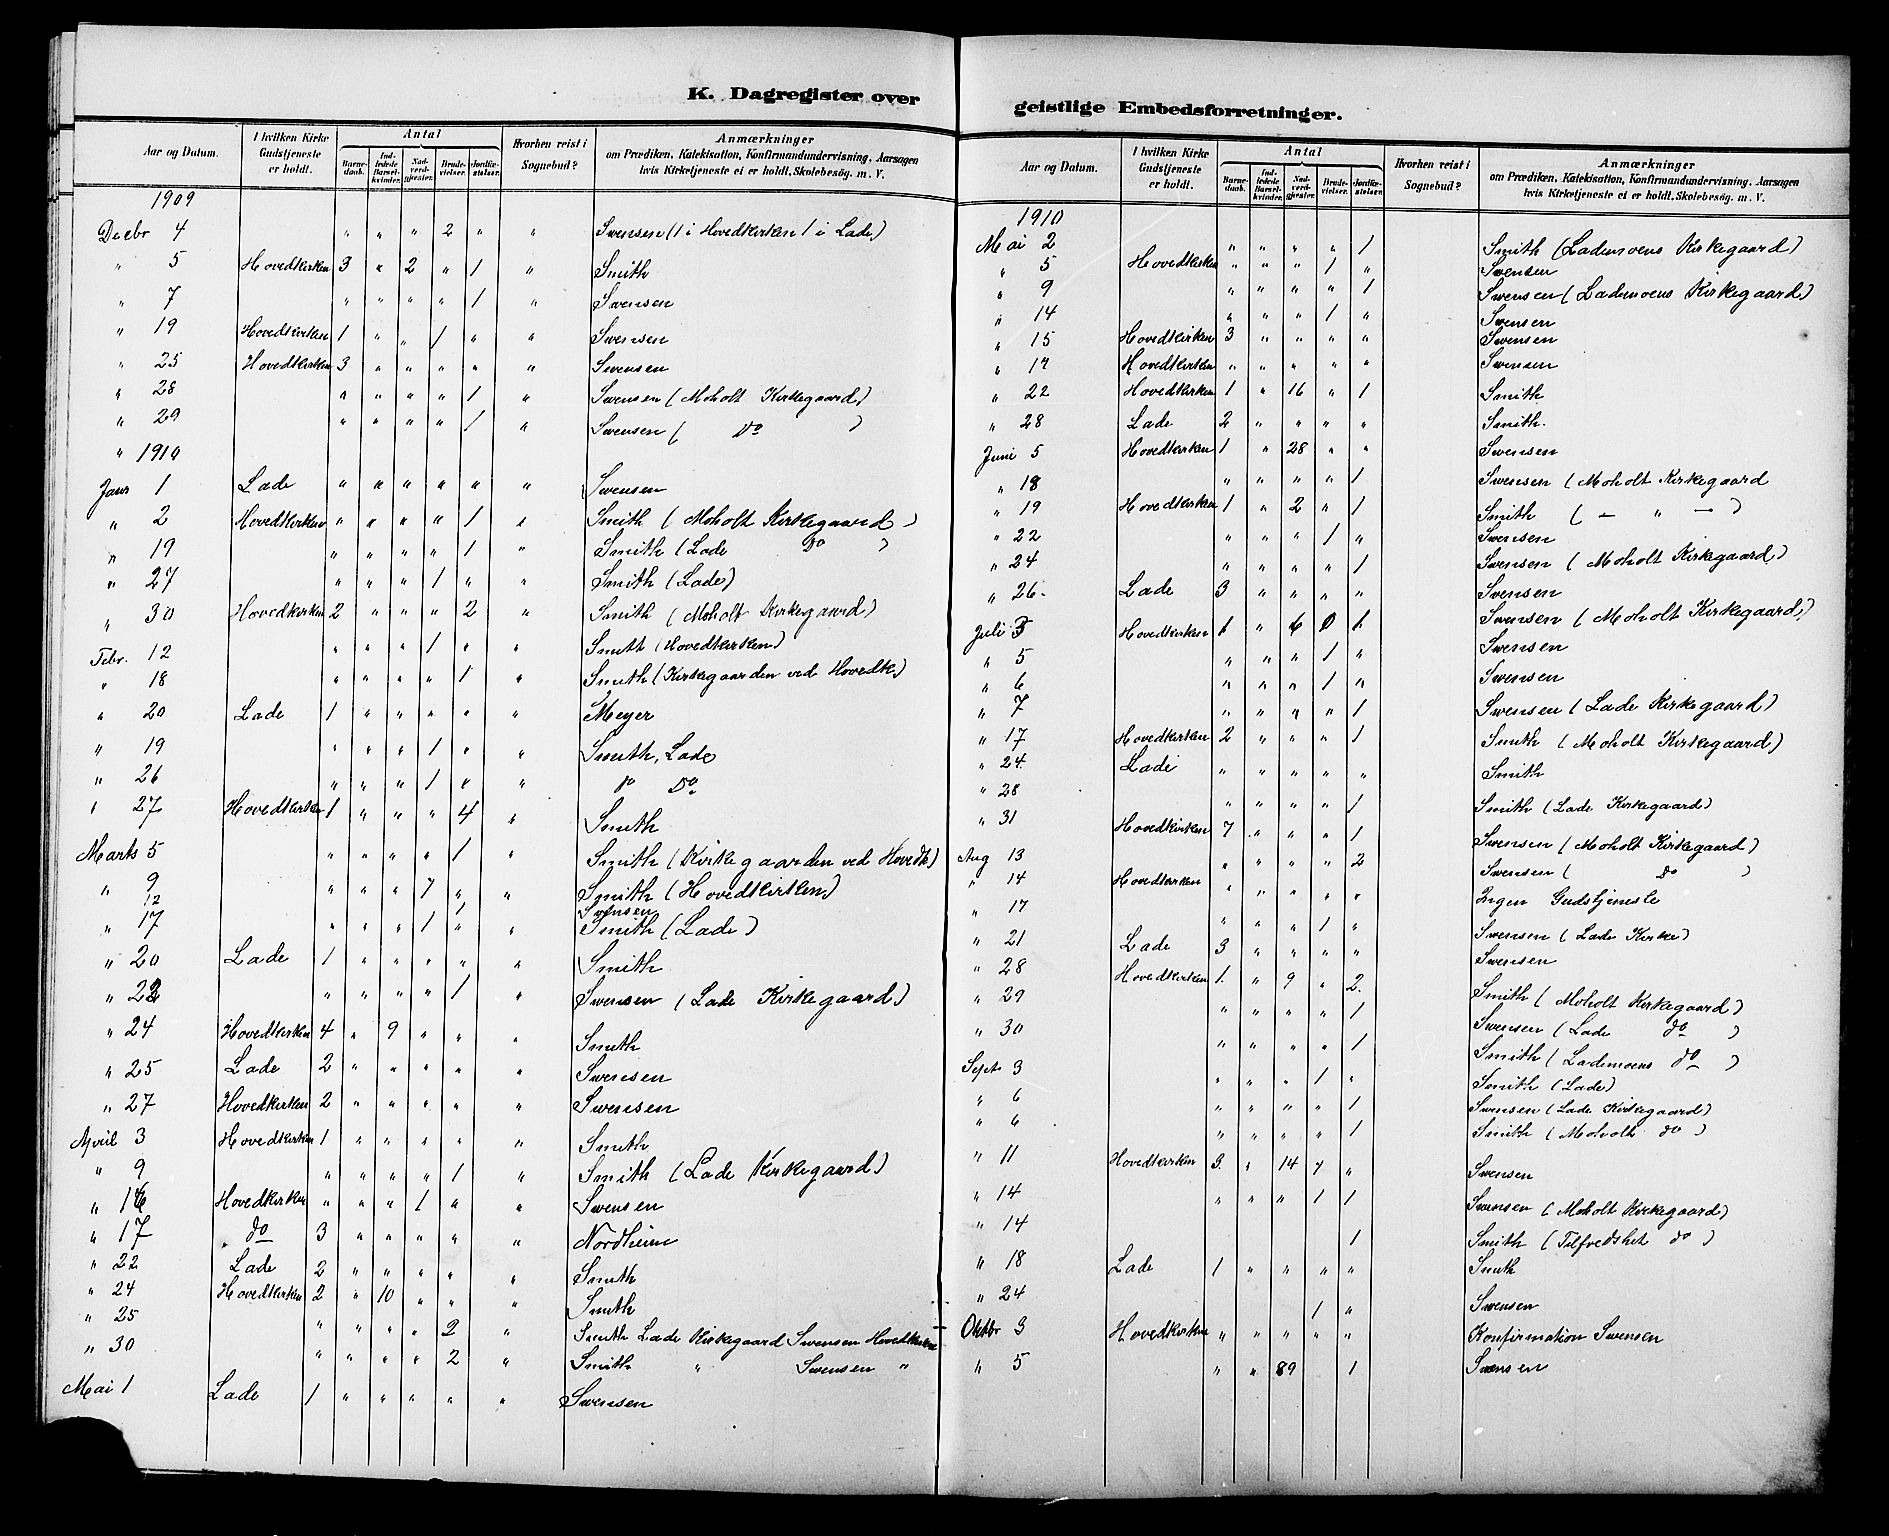 K. Dagregister over
Aar og Datum. I hvilken Kirke Gudstjeneste er holdt. Antal Barnedaab. Indledede Barselkvinder. Nadverdgjester. Brudevielser. Jordfæstelser. Hvorhen reist i Sognebud? Anmærkninger om Prædiken, Katekisation, Konfirmandundervisning, Aarsagen hvis Kirketjeneste ei er holdt, Skolebesøg. m. V.
1909
Decbr 4 " " " 2 " " Swensen (1 i Hovedkirken 1 i Lade)
" 5 Hovedkirken 3 " 2 " 1 " Smith
" 7 " " " " 1 " Swensen
" 19 Hovedkirken 1 " " 1 " " Swensen
" 25 Hovedkirken 3 " " " " " Swensen
" 28 " " " " 1 " Swensen (Moholt Kirkegaard)
" 29 " " " " 1 " Swensen ( Do )
" 1910
Janr 1 Lade " " " " " " Swensen
" 2 Hovedkirken " " " " 1 " Smith (Moholt Kirkegaard)
" 19 " " " " 1 " Smith (Lade Do )
" 27 " " " 1 " " Smith (Lade)
" 30 Hovedkirken 2 " " " 2 " Smith (Moholt Kirkegaard)
Febr. 12 " " " 1 " " Smith (Hovedkirken)
" 18 " " " " 1 " Smith (Kirkegaarden ved Hovedk.)
" 20 Lade 1 " " " " " Meyer
" 19 " " " 1 " " Smith, Lade
" 26 " " " 1 " " Do Do
" 27 Hovedkirken 1 " " " 4 " Smith
Marts 5 " " " " 1 " Smith (Kirkegaarden ved Hovedk)
" 9 " " " 7 " " Smith (Hovedkirken)
12 1 Swensen
" 17 " " " 1 " " Smith (Lade)
" 20 Lade 1 " " " " " Smith
" 22 " " " " 1 " Swensen (Lade Kirkegaard)
" 24 Hovedkirken 4 " 9 " " " Smith
" 25 Lade 2 " " " " " Swensen
" 27 Hovedkirken 2 " " " " " Swensen
April 3 Hovedkirken 1 " " " " " Smith
" 9 " " " " 1 " Smith (Lade Kirkegaard)
" 16 Hovedkirken " " " 1 " " Swensen
" 17 " do 3 " " " " " Nordheim
" 22 Lade 2 " " " " " Smith
" 24 Hovedkirken 2 " 10 " " " Smith
" 25 " " " " 2 " Smith Lade Kirkegaard Swensen Hovedkirken
" 30 " " " " 2 " Smith " Swensen "
Mai 1 Lade 1 " " " " " Swensen
geistlige Embedsforretninger.
Aar og Datum. I hvilken Kirke Gudstjeneste er holdt. Antal Barnedaab. Indledede Barselkvinder. Nadverdgjester. Brudevielser. Jordfæstelser. Hvorhen reist i Sognebud? Anmærkninger om Prædiken, Katekisation, Konfirmandundervisning, Aarsagen hvis Kirketjeneste ei er holdt, Skolebesøg. m. V.
1910
Mai 2 " " " " 1 Smith (Lademoens Kirkegaard)
" 5 Hovedkirken " " " 1 " Swensen
" 9 " " " " 1 Swensen (Lademoens Kirkegaard)
" 14 " " " 1 " Swensen
" 15 Hovedkirken 3 " " " " Swensen
" 17 Hovedkirken " " " " " Swensen
" 22 Hovedkirken 1 " 16 " 1 Smith
" 28 Lade 2 " " " " Smith.
Juni 5 Hovedkirken 1 " 28 " " Swensen
" 18 " " " " 1 Swensen (Moholt Kirkegaard
" 19 Hovedkirken 1 " 2 " 1 Smith ( — " — )
" 22 " " " 1 " Swensen
" 24 " " " " 1 Swensen (Moholt Kirkegaard)
" 26. Lade 3 " " " " Swensen
Juli 3 Hovedkirken 1 " 6 0 1. Swensen (Moholt Kirkegaard)
" 5 " " " 1 " Swensen
" 6 " " " 1 " Swensen
" 7 " " " " 1 Swensen (Lade Kirkegaard)
" 17 Hovedkirken 2 " " " 1 Smith (Moholt Kirkegaard)
" 24 Lade " " " " " Smith
" 28 " " " " 1 Smith (Lade Kirkegaard)
" 31 Hovedkirken 7 " " " 1 Swensen (Moholt Kirkegaard)
Aug 13 " " " " 2 Swensen ( do )
" 14 Hovedkirken " " " " " Ingen Gudstjeneste
" 17 " " " 1 " Swensen (Lade Kirke)
" 21 Lade 3 " " " " Swensen
" 28 Hovedkirken 1. " 9 " 2. Smith (Moholt Kirkegaard)
" 29 " " " " 1 Swensen (Lade do )
" 30 " " " " 1 Smith (Lademoens do )
Sept 3 " " " 1 " Smith (Lade)
" 6 " " " " 1 Swensen (Lade Kirkegaard)
" 6 " " " " 1 Smith (Moholt do )
" 11 Hovedkirken 3. " 14 7 " Swensen
" 14 " " " 1 1 Swensen (Moholt Kirkegaard)
" 14 1 Smith (Tilfredshet do )
" 18 Lade 1 " " " " Smith
" 24 1 " Swensen
Oktbr 3 Hovedkirken " " " " " Konfirmation Swensen
" 5 " " 89 1 Swensen